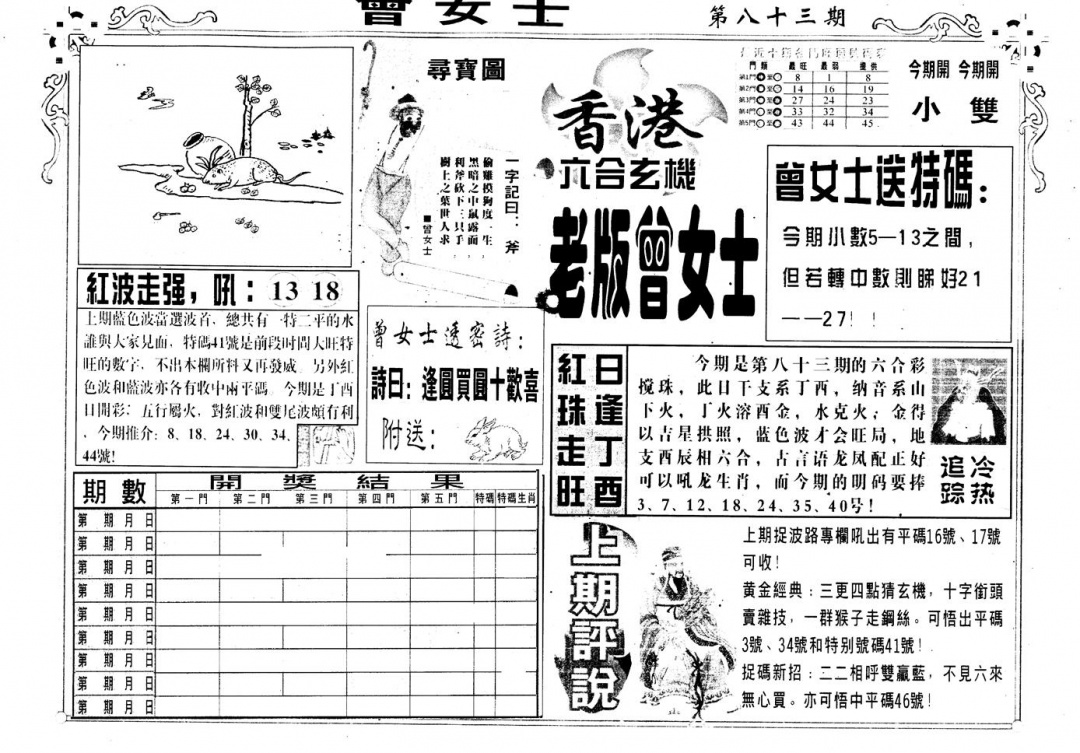 曾女士
第八十三期
尋寶圖
一字記曰：斧
偷雞摸狗度一生，
黑暗之中鼠露面，
利斧砍下三只手，
樹上之葉世人求
■曾女士
香港
六合玄機
老版曾女士
門類 最旺 最弱 提供
第1門 8 1 8
第2門 14 16 19
第3門 27 24 23
第4門 33 32 34
第5門 43 44 45
今期開 今期開
小 雙
曾女士送特碼：
今期小數5—13之間，
但若轉中數則睇好21
——27！！
紅波走强，吼：13 18
上期藍色波當選波首，總共有一特二平的水
誰與大家見面，特碼41號是前段时間大旺特
旺的數字，不出本欄所料又再發威。另外紅
色波和藍波亦各有收中兩平碼。今期是丁酉
日開彩：五行屬火，對紅波和雙尾波頗有利
，今期推介：8、18、24、30、34、
44號！
曾女士透密詩：
詩曰：逢圓買圓十歡喜
附送：
日逢丁酉
紅珠走旺
今期是第八十三期的六合彩
搅珠，此日干支系丁酉，纳音系山
下火，丁火溶酉金，水克火；金得
以吉星拱照，蓝色波才会旺局，地
支酉辰相六合，古言语龙凤配正好
可以吼龙生肖，而今期的明码要捧
3、7、12、18、24、35、40号！
冷热
追踪
期數 開獎結果
第一門 第二門 第三門 第四門 第五門 特碼 特碼生肖
第 期 月 日
第 期 月 日
第 期 月 日
第 期 月 日
第 期 月 日
第 期 月 日
第 期 月 日
第 期 月 日
第 期 月 日
上期評說
上期捉波路專欄吼出有平碼16號、17號
可收！
黄金經典：三更四點猜玄機，十字銜頭
賣雜技，一群猴子走鋼絲。可悟出平碼
3號、34號和特别號碼41號！
捉碼新招：二二相呼雙贏藍，不見六來
無心買。亦可悟中平碼46號！